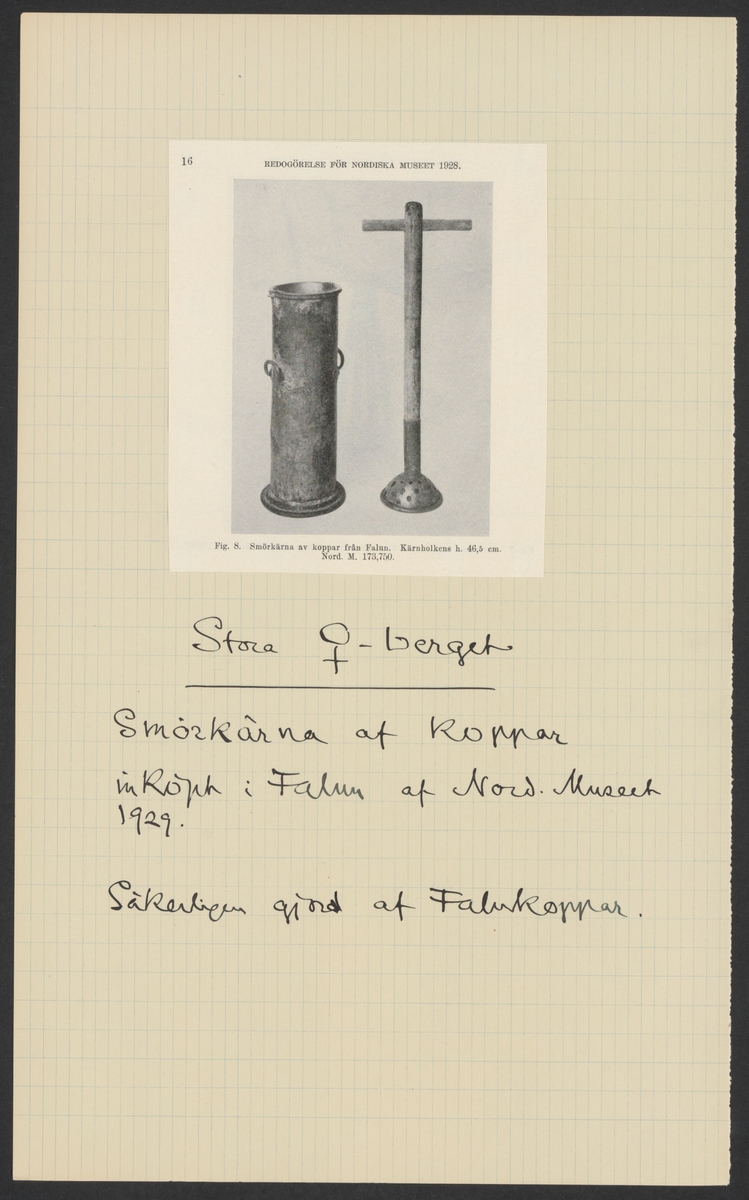 16 REDOGÖRELSE FÖR NORDISKA MUSEET 1928.
Fig. 8. Smörkärna av koppar från Falun. Kärnholkens h. 46,5 cm.
Nord. M. 173,750.
Stora ♀-berget
Smörkärna af koppar
inköpt i Falun af Nord. Museet
1929.
Säkerligen gjord af Falukoppar.